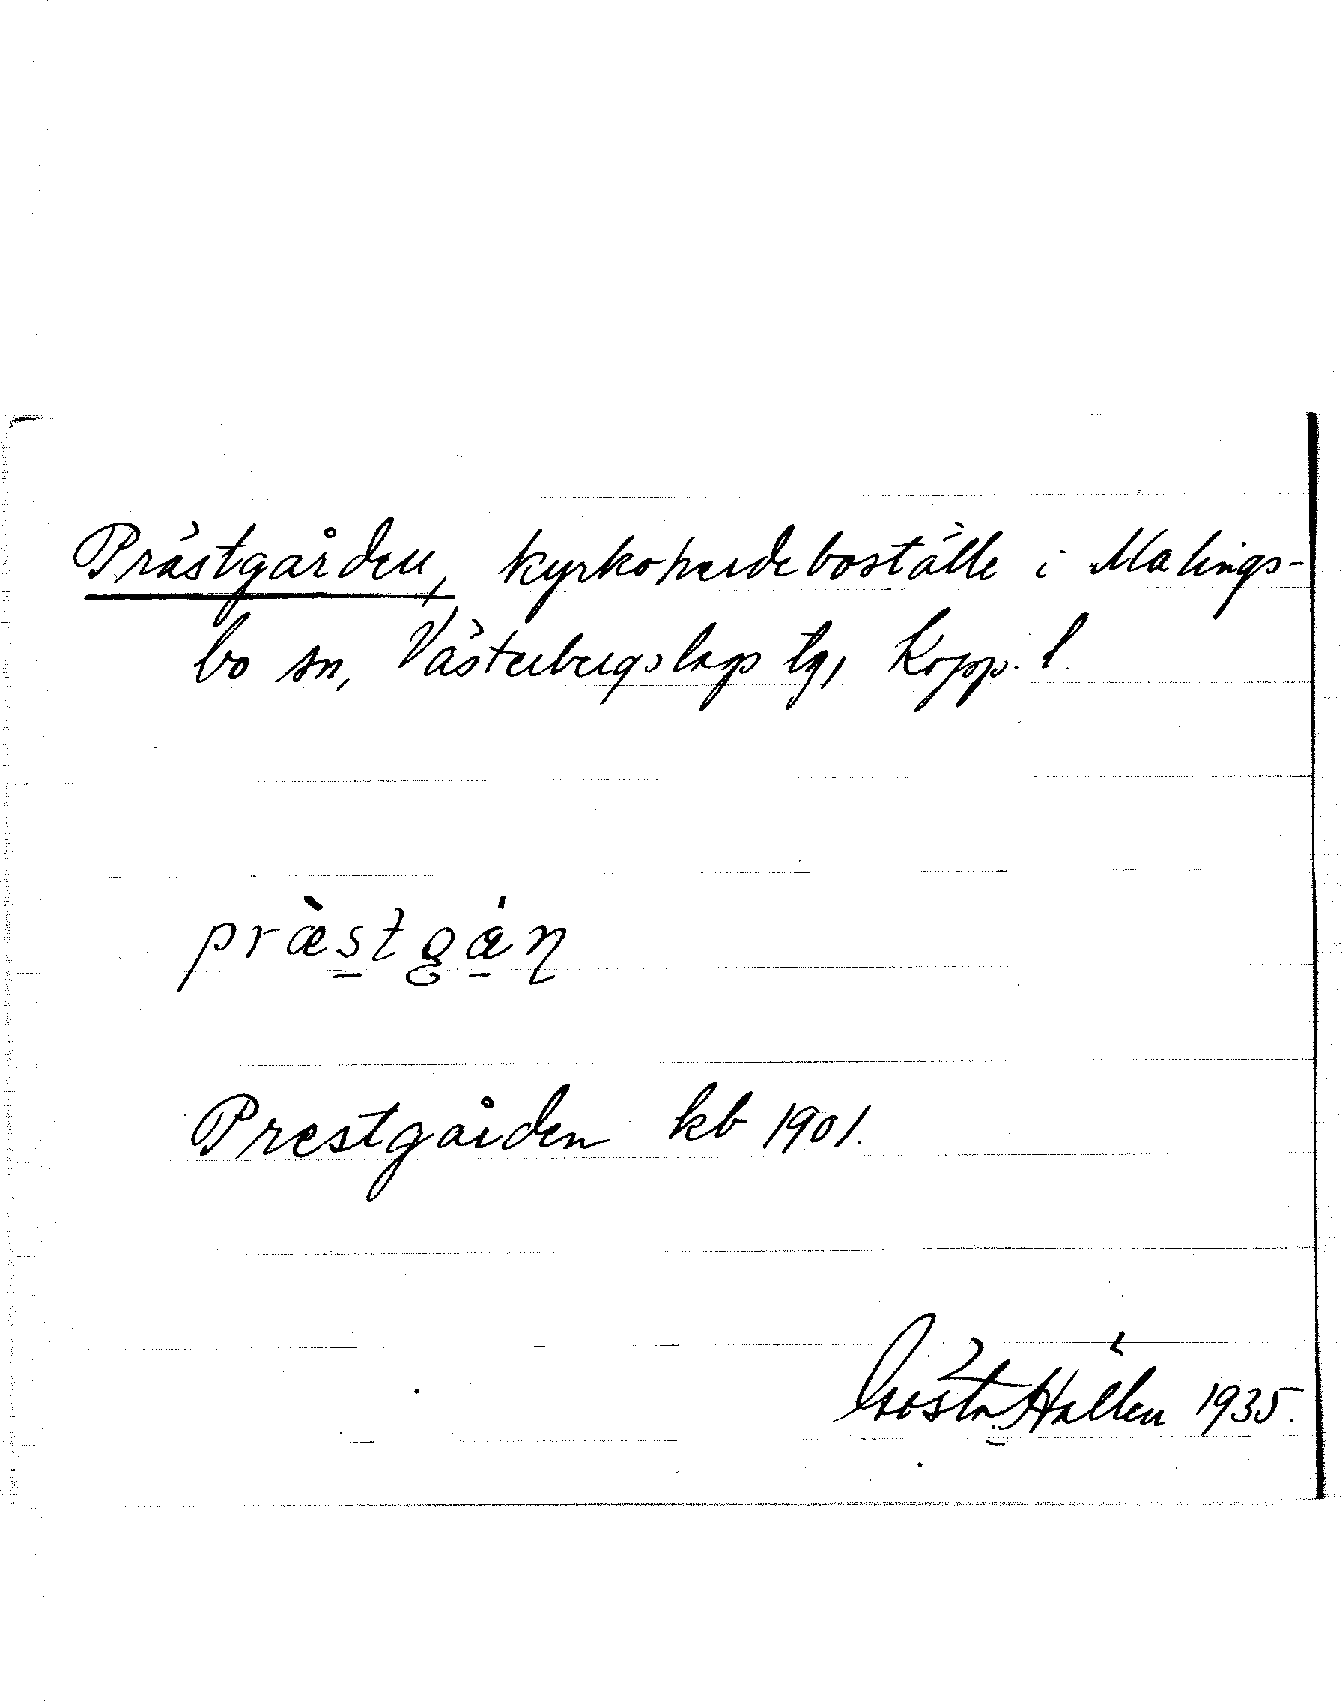 Prästgården, kyrkoherdeboställe i Malings-
bo sn, Västerbergslags tg, Kopp. l.
præ̀stgán
Prestgården kb 1901.
Gösta Hallén 1935.